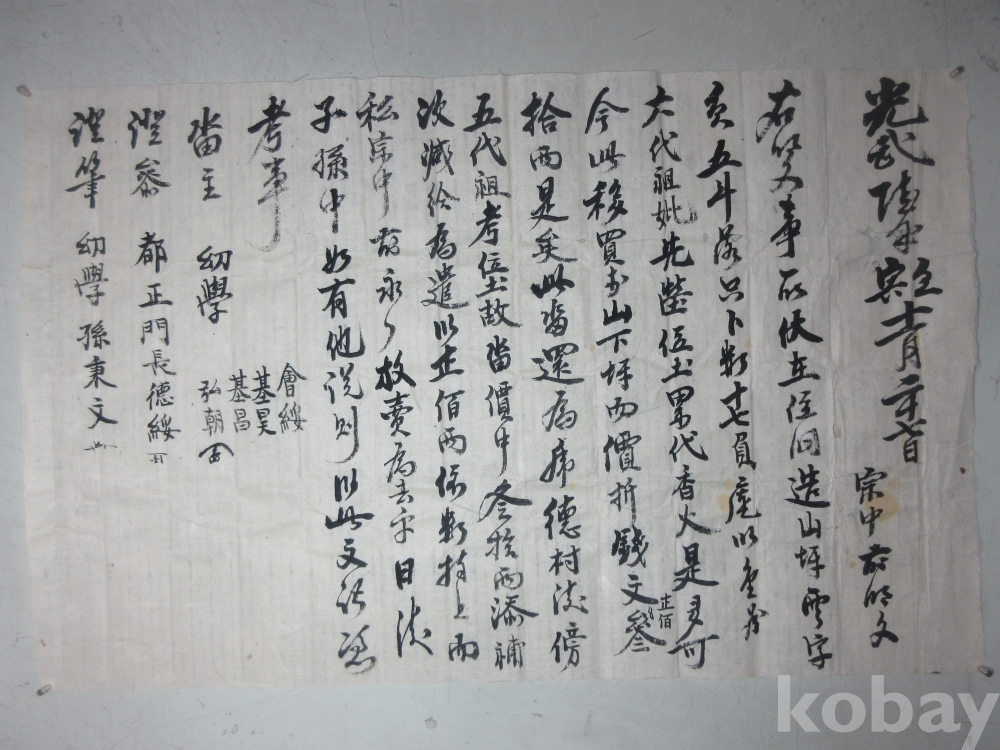 光武陸年 壬寅 十一月二十七日
宗中前明文
右明文事段伏在任洞造山坪雲字
負五斗落只卜數十七負庫以
六代祖妣先塋位土累代香火是多可
今此移買于山下坪而價折錢文壹佰參
拾兩是矣此畓還爲席德村後傍
五代祖考位土故畓價中參拾兩添補
次減給爲遣以壹佰兩依數捧上而
私宗中前永永放賣爲去乎日後
子孫中如有他說則以此文記憑
考事
畓主 幼學 會綏
基昊
基昌
弘朝
證參 都正門長德綏
證筆 幼學孫秉文
kobay